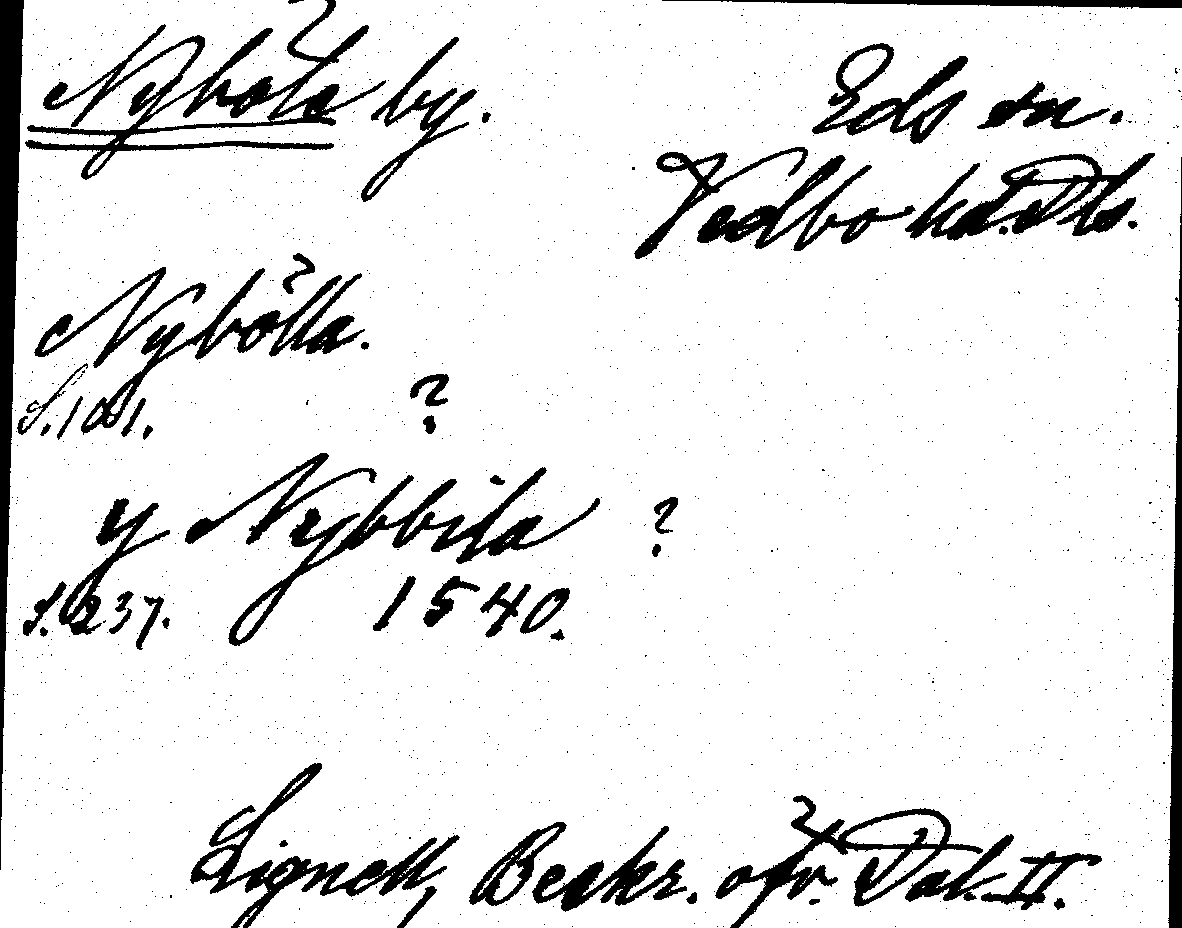 Nyböle by.
Eds sn.
Vedbo hd. Dls.
Nybölla.
S. 101. ?
y Nybbila ?
S. 237. 1540.
Lignell, Beskr. öfv. Dal. II.